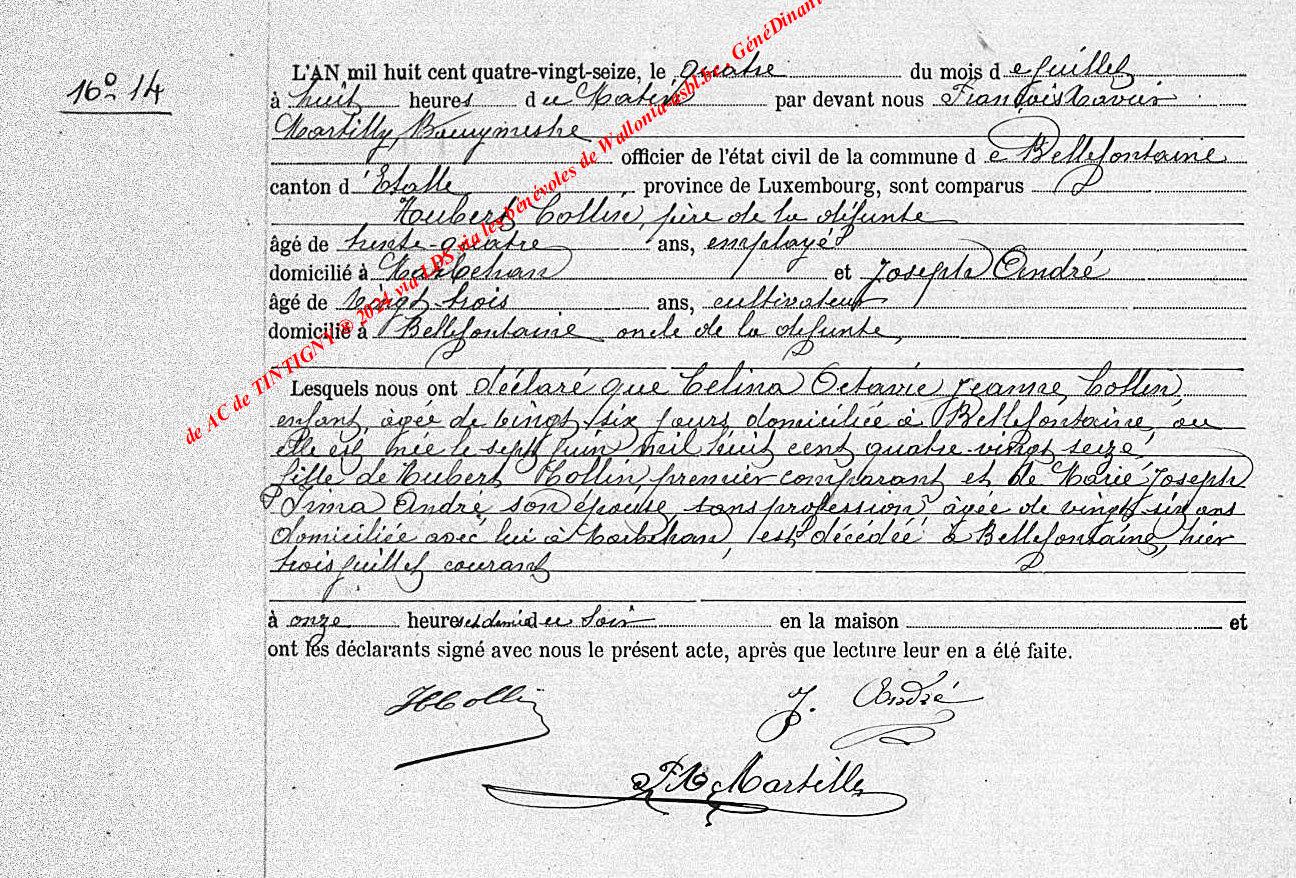 No 14
L'AN mil huit cent quatre-vingt-seize, le quatre du mois de juillet
à huit heures du Matin par devant nous François Xavier
Martilly, Bourgmestre
officier de l'état civil de la commune de Bellefontaine
canton d'Etalle, province de Luxembourg, sont comparus
Hubert Collin, père de la défunte
âgé de trente-quatre ans, employé
domicilié à Marbehan et Joseph André
âgé de vingt-trois ans, cultivateur
domicilié à Bellefontaine oncle de la défunte,
Lesquels nous ont déclaré que Celina Octavie Jeanne Collin,
enfant, âgée de vingt six jours domiciliée à Bellefontaine, où
elle est née le sept juin mil huit cent quatre-vingt seize,
fille de Hubert Collin premier comparant et de Marie Joseph
Irma André son épouse, sans profession âgée de vingt-six ans
domiciliée avec lui à Marbehan, est décédée à Bellefontaine, hier
trois juillet courant
à onze heures et demie du Soir en la maison et
ont les déclarants signé avec nous le présent acte, après que lecture leur en a été faite.
HCollin J. André
FX Martilly
de AC de TINTIGNY © 2024 via LDS via les bénévoles de Wallonia-asbl.be, GénéDinant